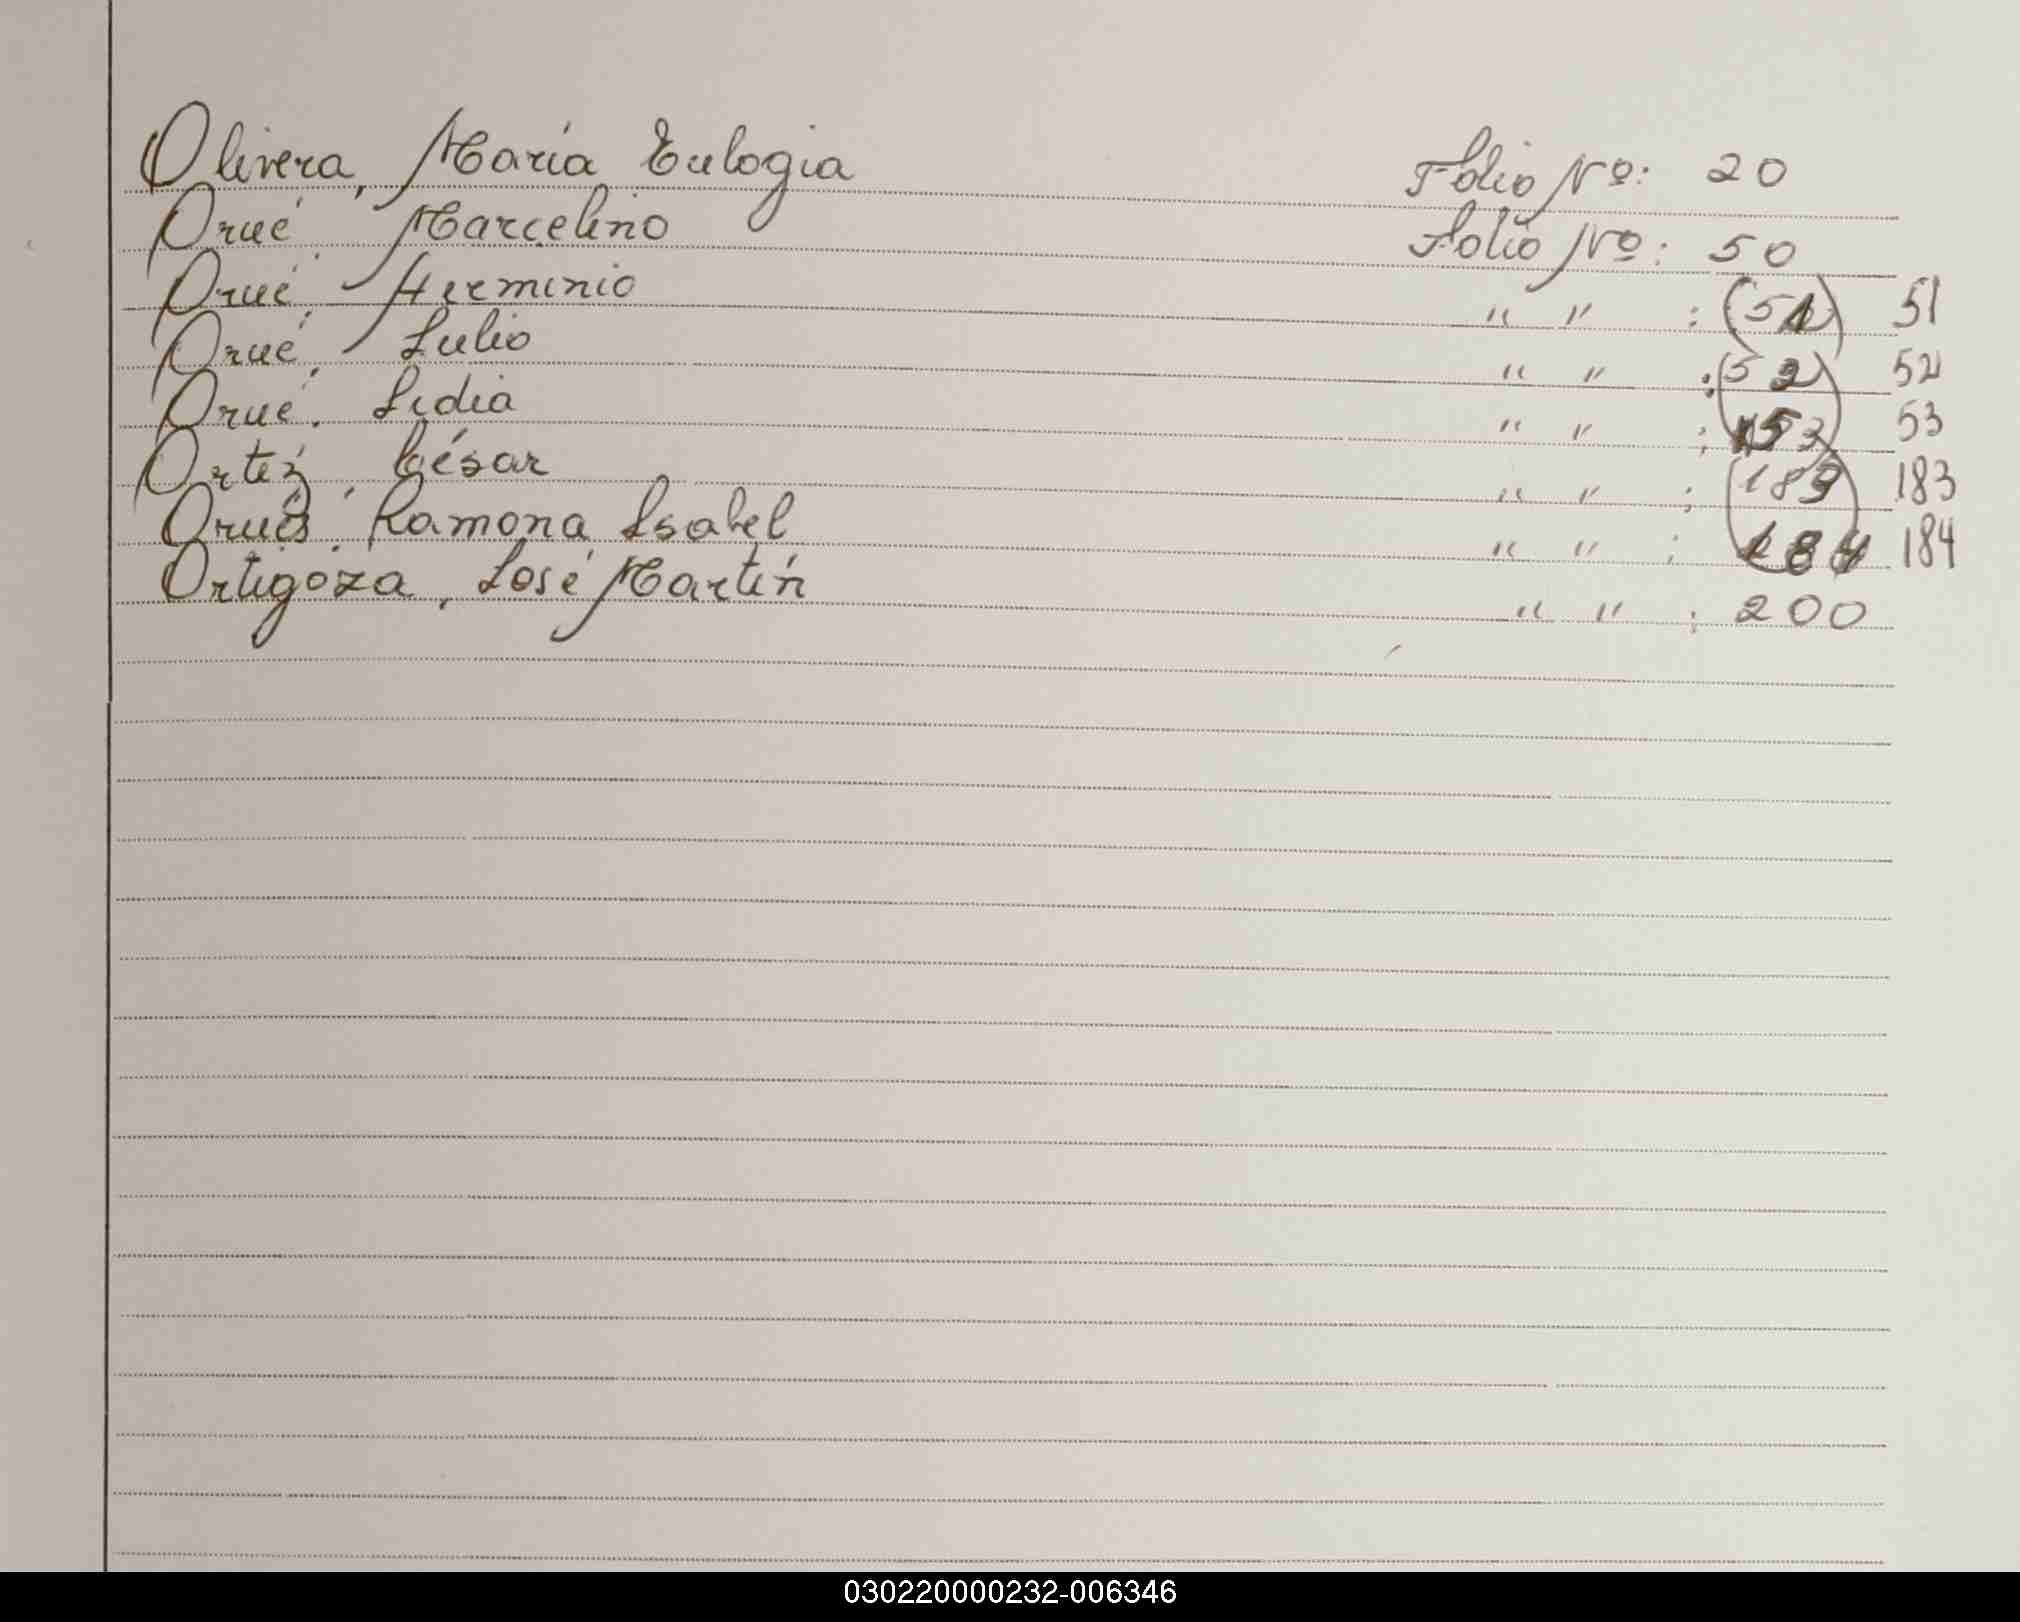 Olivera, María Eulogia Folio Nº: 20
Orué, Marcelino Folio Nº: 50
Orué, Herminio " " : (51) 51
Orué, Julio " " : (52) 52
Orué, Lidia " " : (53) 53
Ortiz, César " " : (183) 183
Orués, Ramona Isabel " " : (184) 184
Ortigoza, José Martín " " : 200
030220000232-006346